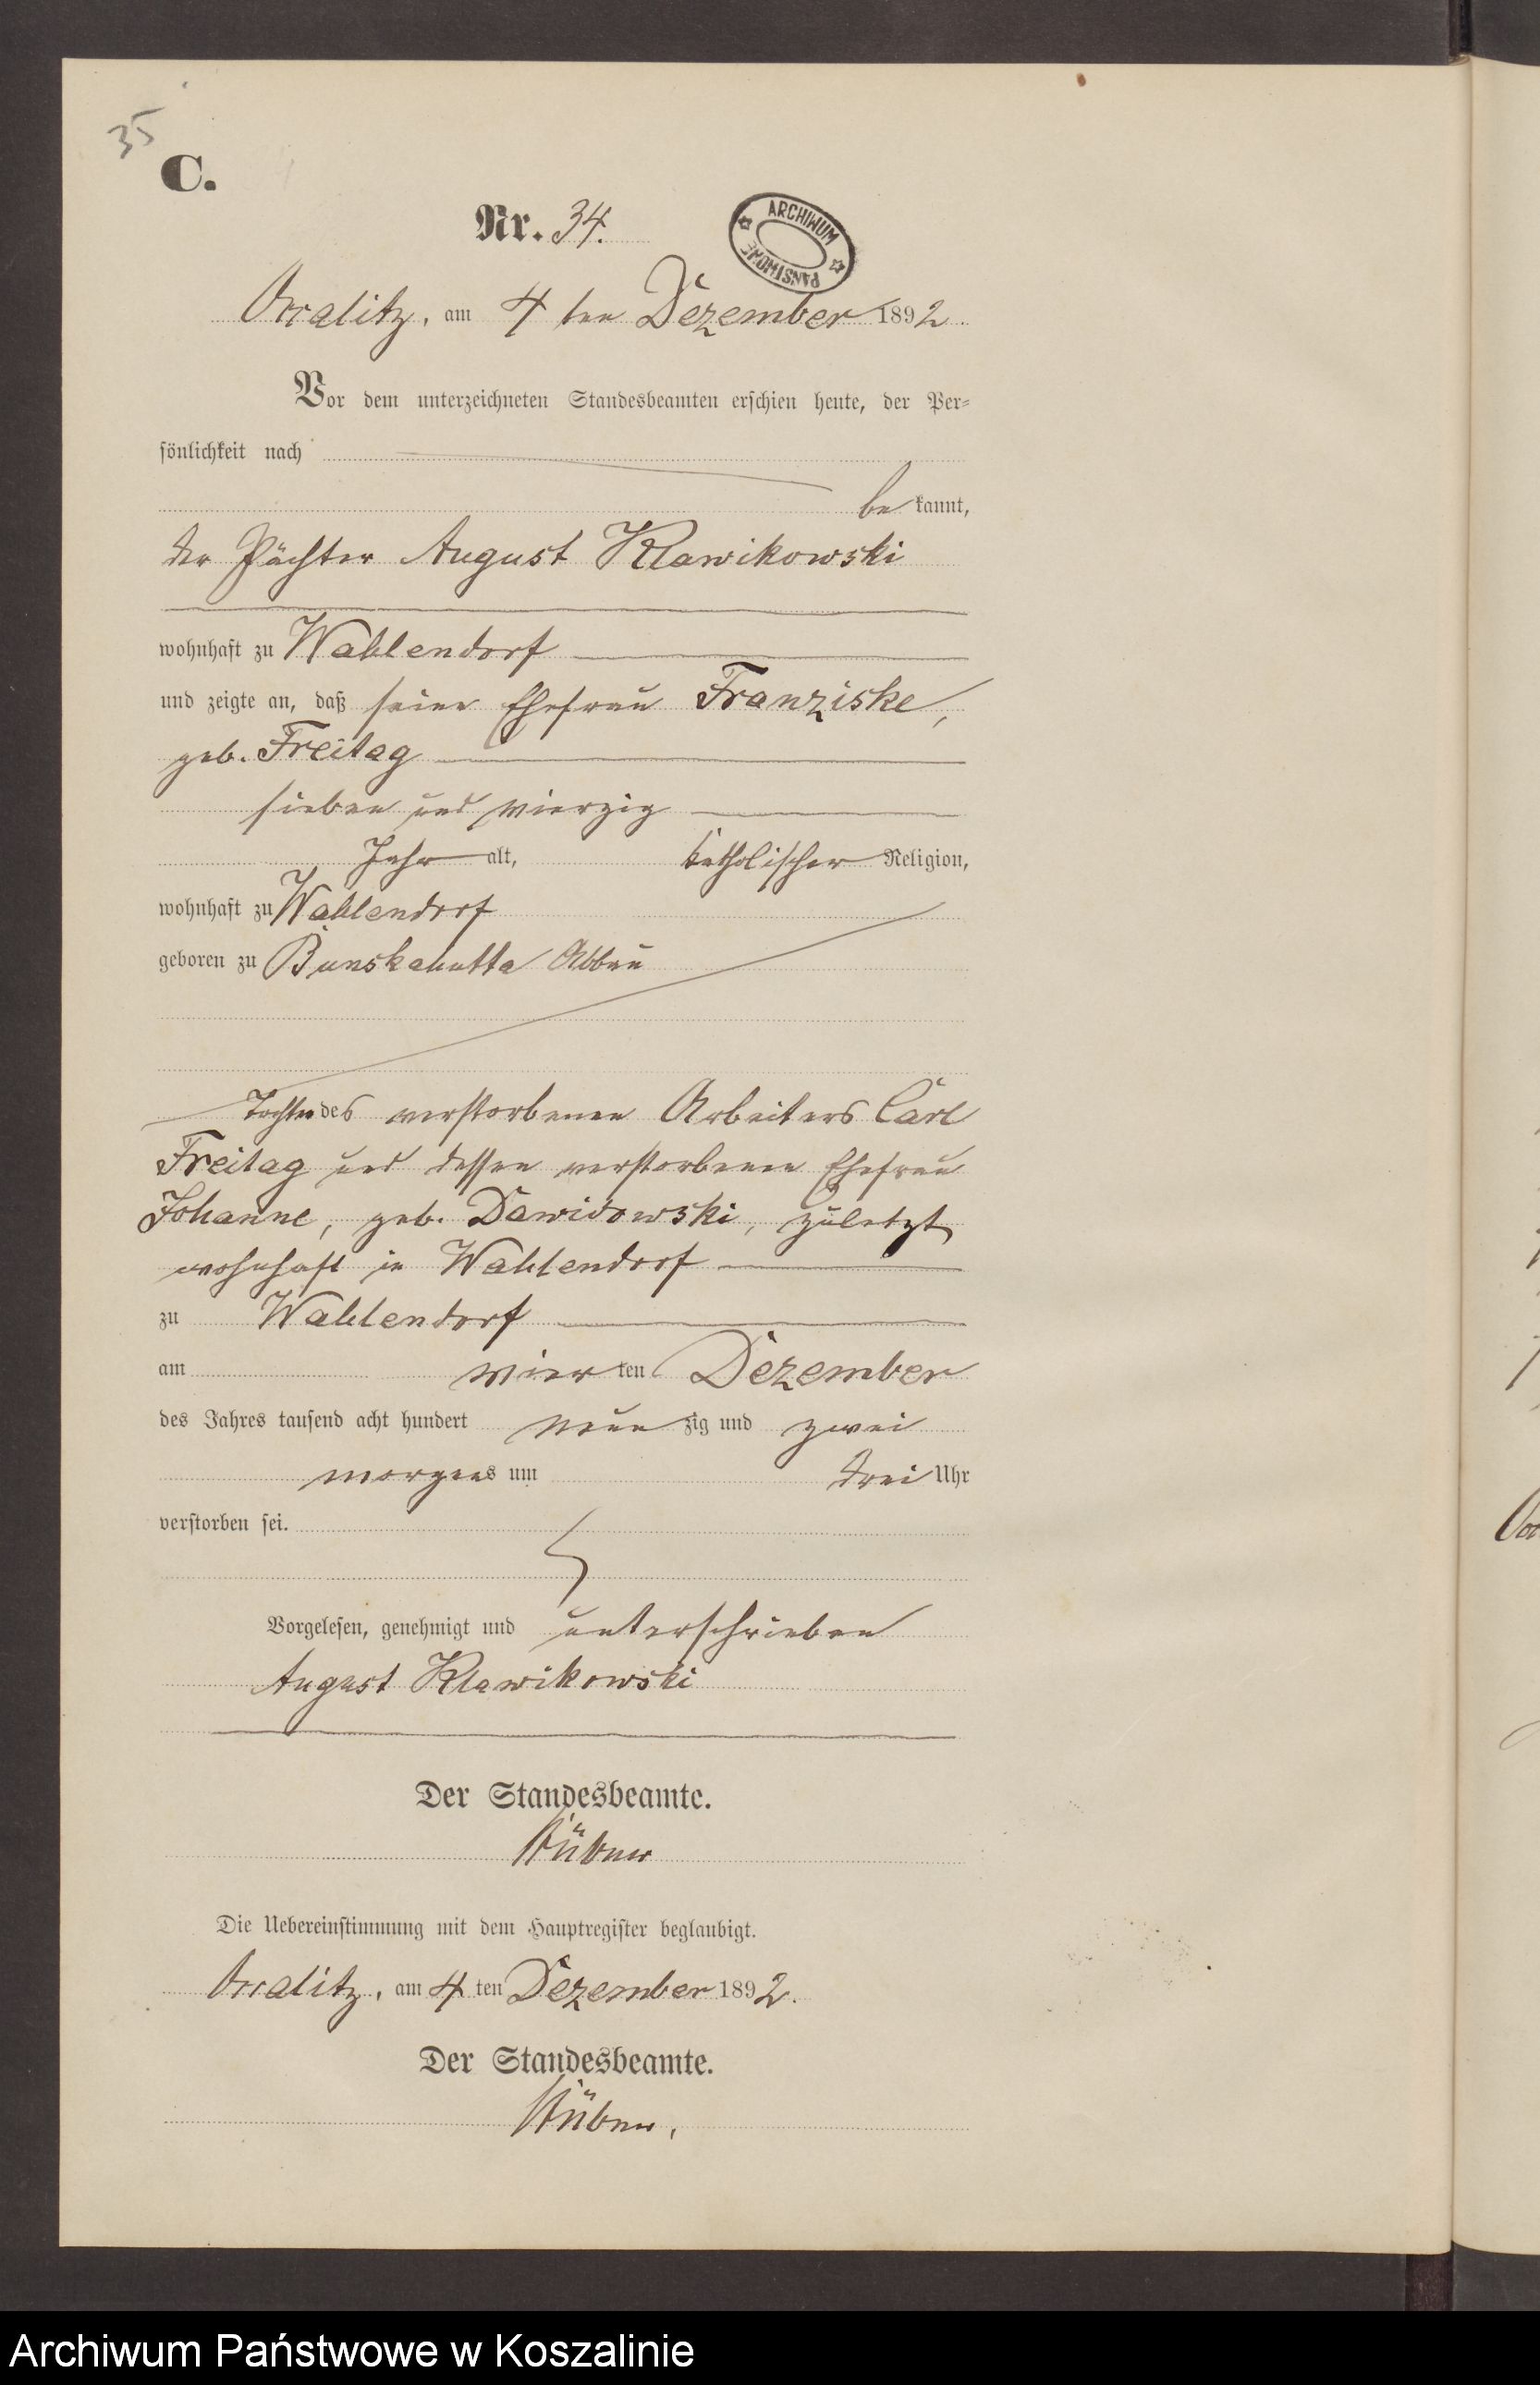 35
C.
Nr. 34.
ARCHIWUM PAŃSTWOWE
am 4 ten Dezember 1892.
Vor dem unterzeichneten Standesbeamten erschien heute, der Per-
sönlichkeit nach
be kannt,
der Pächter August Klawikowski
wohnhaft zu Wahlendorf
und zeigte an, daß seine Ehefrau Franziske,
geb. Freitag
sieben und vierzig
Jahr alt, katholischer Religion,
wohnhaft zu Wahlendorf
geboren zu Abbau
Tochter des verstorbenen Arbeiters Carl
Freitag und dessen verstorbenen Ehefrau
Johanne, geb. Dawidowski, zuletzt
wohnhaft in Wahlendorf
zu Wahlendorf
am vier ten Dezember
des Jahres tausend acht hundert neun zig und zwei
morgens um drei Uhr
verstorben sei.
Vorgelesen, genehmigt und unterschrieben
August Klawikowski
Der Standesbeamte.
Die Uebereinstimmung mit dem Hauptregister beglaubigt.
am 4 ten Dezember 1892.
Der Standesbeamte.
Archiwum Państwowe w Koszalinie